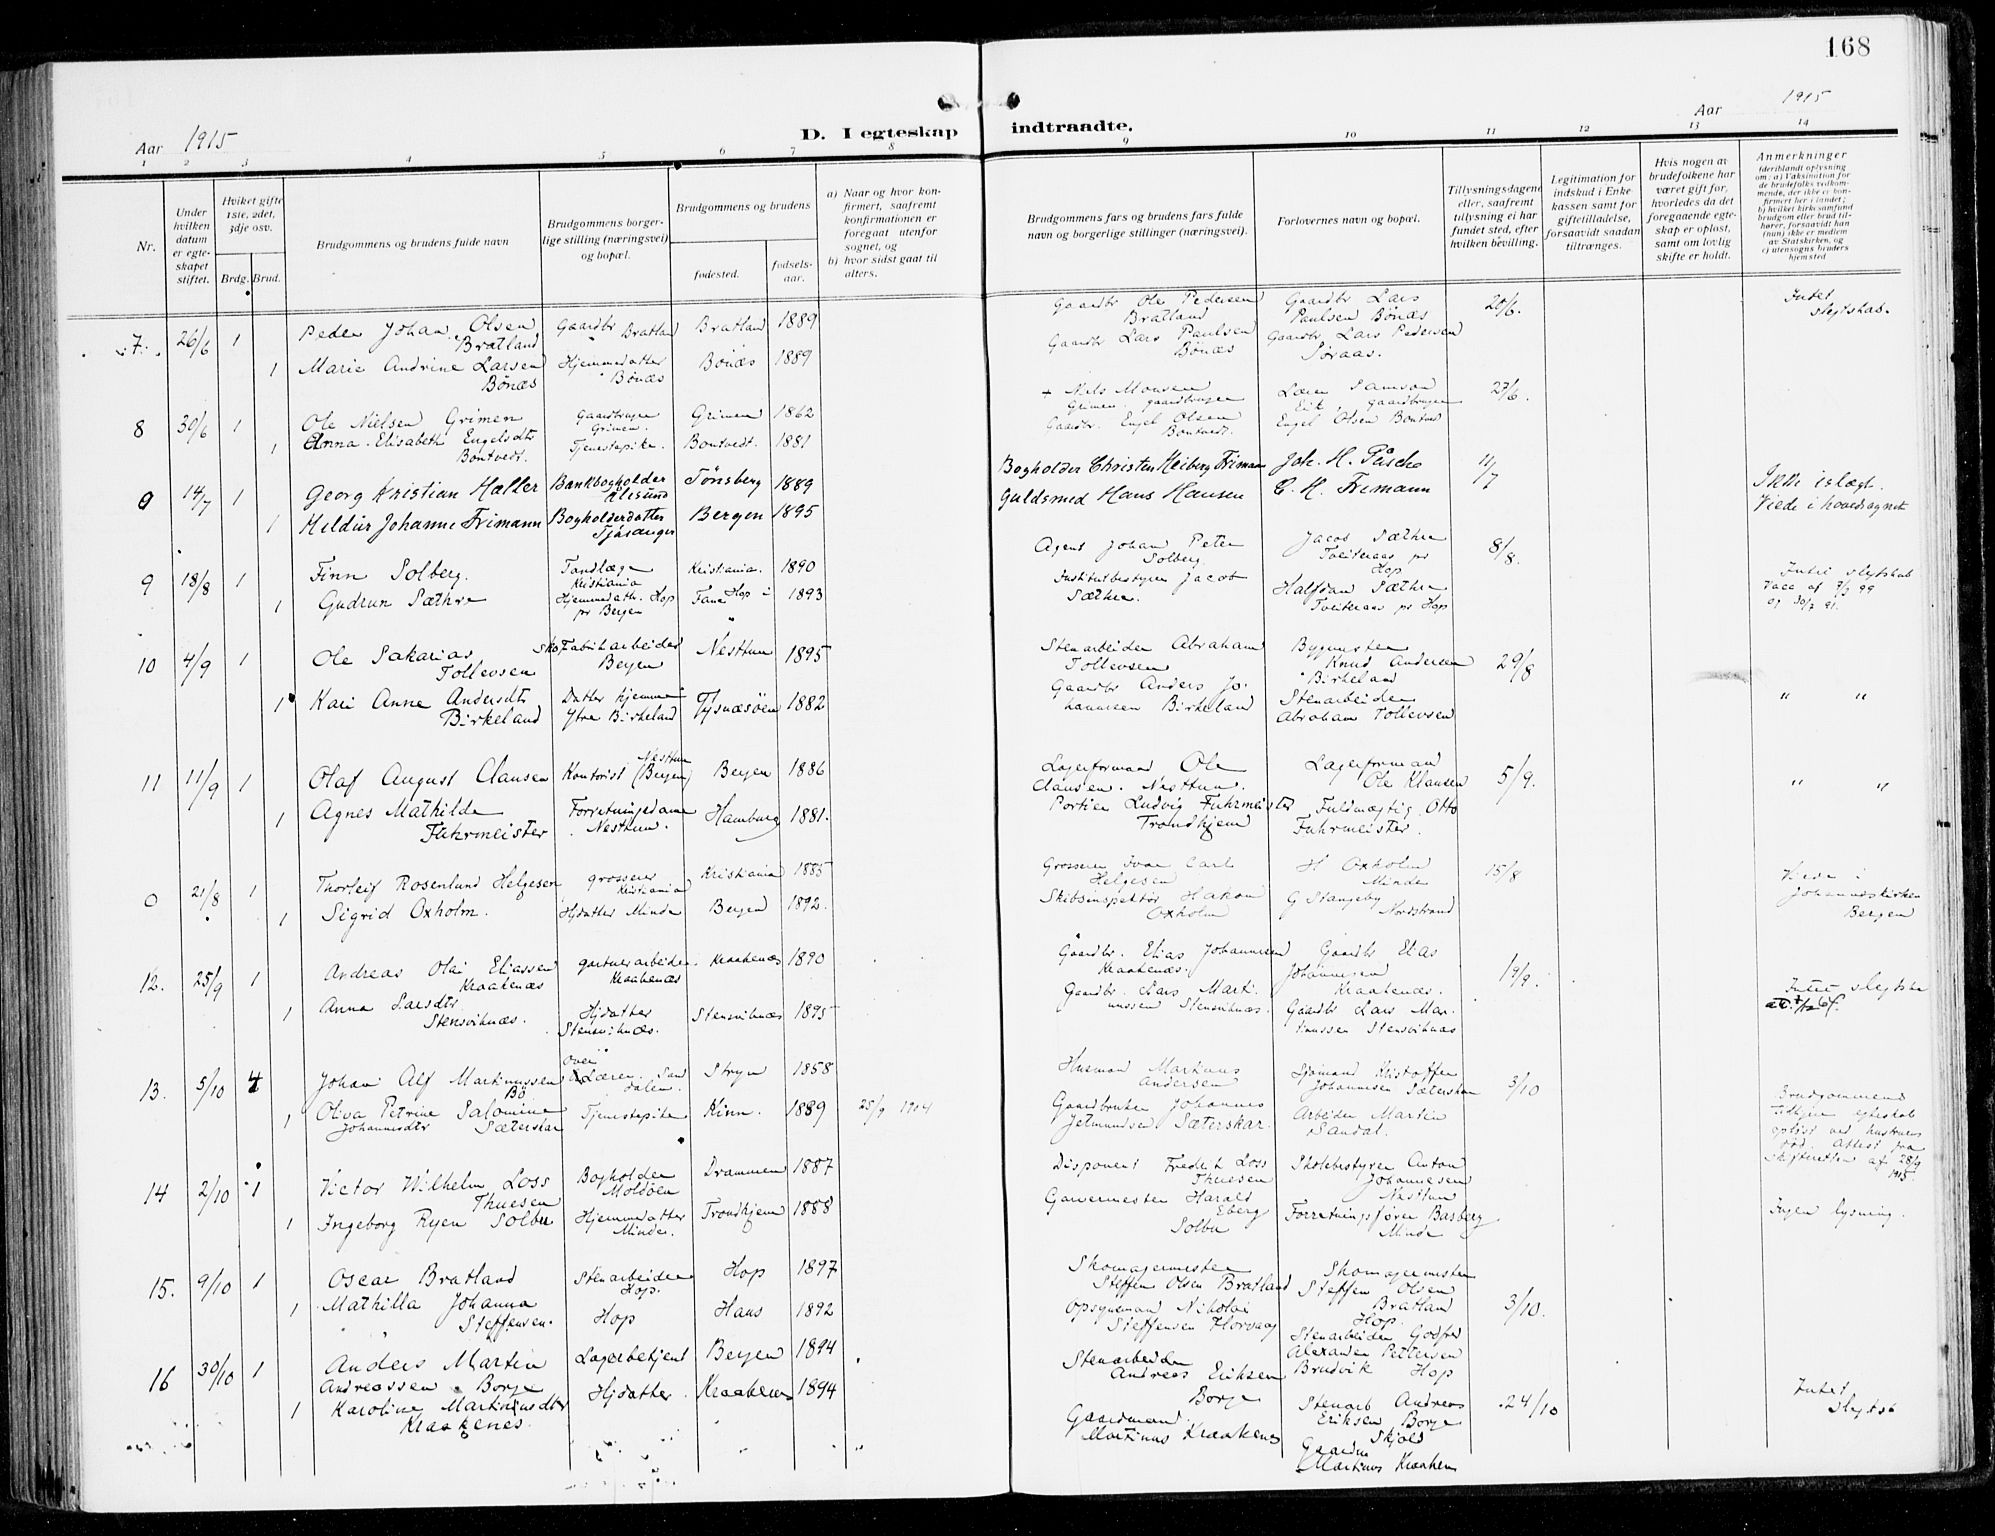 168
Aar 1915
D. I egteskap indtraadte.
Aar 1915
1 2 3 4 5 6 7 8 9 10 11 12 13 14
Nr.
Under hvilken datum er egteskapet stiftet.
Hvilket gifte 1ste, 2det, 3dje osv.
Brdg. Brud.
Brudgommens og brudens fulde navn
Brudgommens borgerlige stilling (næringsvei) og bopæl.
Brudgommens og brudens
fødested.
fødselsaar.
a) Naar og hvor konfirmert, saafremt konfirmationen er foregaat utenfor sognet, og
b) hvor sidst gaat til alters.
Brudgommens fars og brudens fars fulde navn og borgerlige stillinger (næringsvei).
Forlovernes navn og bopæl.
Tillysningsdagene eller, saafremt tillysning ei har fundet sted, efter hvilken bevilling.
Legitimation for indskud i Enkekassen samt for giftetilladelse, forsaavidt saadan tiltrænges.
Hvis nogen av brudefolkene har været gift før, hvorledes da det foregaaende egteskap er opløst, samt om lovlig skifte er holdt.
Anmerkninger (deriblandt oplysning om: a) Vaksination for de brudefolks vedkommende, der ikke er konfirmert her i landet; b) hvilket kirkesamfund brudgom eller brud tilhører, forsaavidt han (hun) ikke er medlem av Statskirken, og c) utensogns bruders hjemsted
7. 26/6 1 Peder Johan Olsen Bratland Gaardbr Bratland Bratland 1889 Gaardbr Ole Pedersen Bratland Gaardbr Lars Paulsen Bönæs 20/6. Intet slegtskab.
1 Marie Andrine Larsen Bönæs Hjemmedatter Bönæs Bönæs 1889 Gaardbr Lars Paulsen Bönæs Gaardbr Lars Pedersen Søraas.
8 30/6 1 Ole Nielsen Grimen Gaardbruger Grimen. Grimen 1862 + Niels Monsen Grimen gaardbruger Samson gaardbruger 27/6.
1 Anna Elisabeth Engelsdtr Bontvedt. Tjenestepike. Bontvedt. 1881 Gaardbr. Engel Olsen Bontvedt. Engel Olsen Bontved
0 14/7 1 Georg Kristian Haller Bankbogholder Ålesund Tønsberg 1889 Bogholder Christen Heiberg Frimann Joh. H. Påsche 11/7 Ikke i slægt.
1 Hildur Johanne Frimann Bogholderdatter Fjösanger Bergen 1895 Guldsmed Hans Hansen C. H. Frimann Viede i hovedsognet
9 18/8 1 Finn Solberg. Tandlæge Kristiania Kristiania. 1890 Agent Johan Peter Solberg. Jacob Sæthre Tveiteraas pr Hop 8/8. Intet slegtskab
1 Gudrun Sæthre Hjemmedatt. Hop pr Bergen Hop i Fana 1893 Institutbestyrer Jacob Sæthre. Halfdan Sæthre Tveiteraas pr Hop Vacc af 7/9 99 og 30/7 91.
10 4/9 1 Ole Sakarias Tollevsen Sko Fabrikarbeider Bergen Nesttun 1895 Stenarbeider Abraham Tollevsen Bygmester Knud Andersen Birkeland 29/8
1 Kari Anna Andersdtr Birkeland Datter hjemme Ytre Birkeland Tysnæsöen 1882 Gaardbr Anders Johannesen Birkeland Stenarbeider Abraham Tollevsen " "
11 11/9 1 Olaf August Clausen Kontorist Nesttun (Bergen) Bergen 1886 Lagerformand Ole Clausen. Nesttun. Lagerformand Ole Klausen 5/9. " "
1 Agnes Mathilde Fuhrmeister Forretningsdame Nesttun. Hamburg 1881. Portier Ludvig Fuhrmeister Trondhjem Fuldmægtig Otto Fuhrmeister.
0 21/8 1 Thorleif Rosenlund Helgesen grosserer Kristiania Kristiania 1885 Grosserer Ivar Carl Helgesen H. Oxholm Minde 15/8 Viede i Johanneskirken Bergen
1 Sigrid Oxholm. Hjdatter Minde Bergen 1892. Skibsinspektör Hakon Oxholm G Stangeby Nordstrand
12. 25/9 1 Andreas Olai Eliassen Kraakenæs gartnerarbeider Kraakenæs Kraakenæs 1890 Gaardbr. Elias Johannesen Kraakenæs. Gaardbr Elias Johannesen Kraakenæs. 19/9. Intet slegtska
1 Anna Larsdtr Stensviknæs. Hjdatter Stensviknæs. Stensviknæs 1895 Gaardbr. Lars Martinussen Stensviknæs. Gaardbr Lars Martinussen Stensviknæs
13. 5/10 4 Johan Alf Martinussen Bö Over Lærer. Sandalen. Stryn 1858 Husmand Martinus Andersen Sjömand Kristoffer Johannesen Sæterskar 3/10
1 Oliva Petrine Salomine Johannesdtr Sæterskar Tjenestepike Kinn. 1889 25/9 1904 Gaardbruker Johannes Jetmundsen Sæterskar. Arbeider Martin Sandal. Brudgommens tidligere egteskab oplöst ved hustruens död. Attest fra skifteretten af 28/9 1915.
14 2/10 1 Victor Wilhelm Loss Thuesen Bogholder Moldöen Drammen 1887 Disponent Fredrik Loss Thuesen Skolebestyrer Anton Johannesen Nesttun
1 Ingeborg Ryen Solbu Hjemmedatter Minde. Trondhjem 1888 Garvermester Harald Eberg Solbu Forretningsfører Basberg Minde Ingen lysning.
15. 9/10 1 Oscar Bratland Stenarbeider Hop. Hop 1897 Skomagermester Steffen Olsen Bratland Skomagermester Steffen Olsen Bratland Hop. 3/10.
1 Mathilla Johanna Steffensen. Hop Haus 1892 Opsynsmand Nikolai Steffensen Stenarbeider Godfred Alexander Pettersen Brudvik Hop
16 30/10 1 Anders Martin Andreassen Borge Lagerbetjent Bergen 1894 Stenarbeider Andreas Eriksen Borge Stenarb Andreas Eriksen Borge Skjold 24/10 Intet slegtsk
1 Karoline Martinusdtr Kraakenes. Hjdatter Kraakenes 1894 Gaardmand Martinus Kraakenes Gaardm Martinus Kraaken